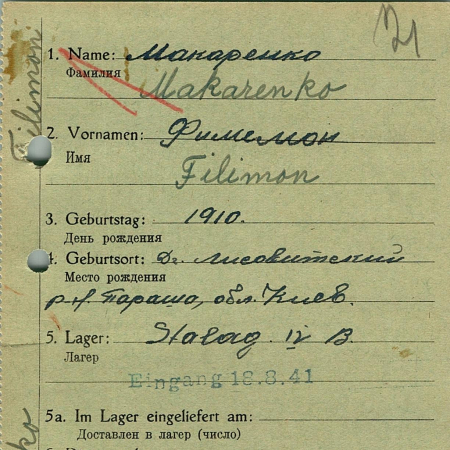 21
1. Name: Макаренко
Фамилия
Makarenko
2. Vornamen: Филемон
Имя
Filimon
3. Geburtstag: 1910.
День рождения
4. Geburtsort: Лисовитский
Место рождения
обл. Киев.
5. Lager: Stalag IV B.
Лагер
Eingang 18.8.41
5a. Im Lager eingeliefert am:
Доставлен в лагер (число)
Filimon
ko